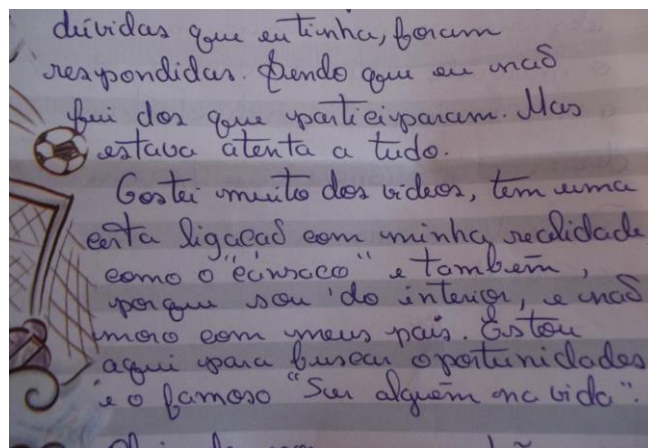 dúvidas que eu tinha, foram
respondidas. Sendo que eu não
fui dos que participaram. Mas
estava atenta a tudo.
Gostei muito dos videos, tem uma
certa ligação com minha realidade
como o "cansaço" e também,
porque sou do interior, e não
moro com meus pais. Estou
aqui para buscar oportunidades
e o famoso "Ser alguém na vida".